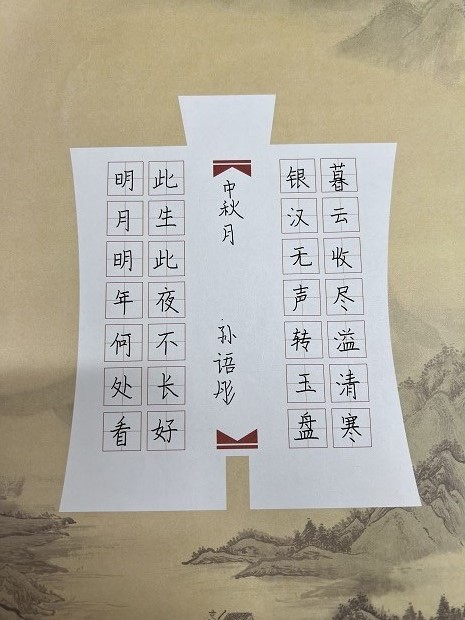 暮云收尽溢清寒
银汉无声转玉盘
中秋月
孙语彤
此生此夜不长好
明月明年何处看